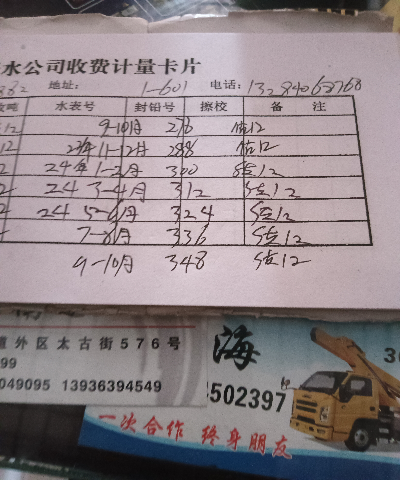 水公司收费计量卡片
882 地址: 1-601 电话: 13284068768
吨 水表号 封铅号 擦校 备 注
12 9-10月 276 估12
12 23年11-12月 288 估12
2 24年1-2月 300 估12
24 3-4月 312 估12
24 5-6月 324 估12
7-8月 336 估12
9-10月 348 估12
道外区太古街576号
99
049095 13936394549
海
3
502397
一次合作 终身朋友